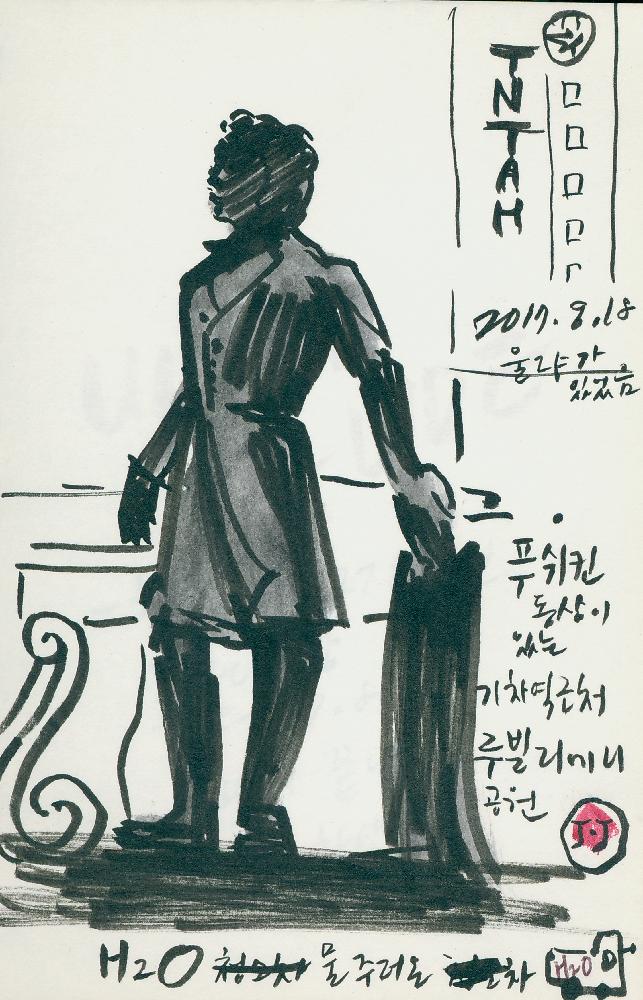 TNTAH
2017. 9.18
울랴가
있었음
푸쉬킨
동상이
있는
기차역근처
루빌리미니
공원
J.J
H2O 물 주러온 차
H2O